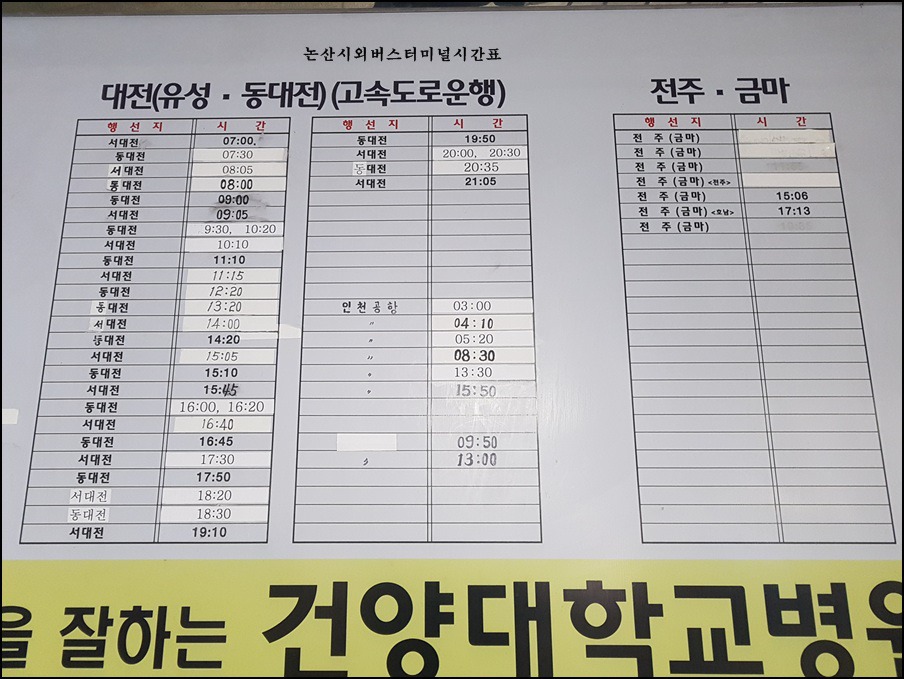 논산시외버스터미널시간표
대전(유성 · 동대전) (고속도로운행)
행 선 지 시 간
서대전 07:00,
동대전 07:30
서대전 08:05
동대전 08:00
동대전 09:00
서대전 09:05
동대전 9:30, 10:20
서대전 10:10
동대전 11:10
서대전 11:15
동대전 12:20
동대전 13:20
서대전 14:00
동대전 14:20
서대전 15:05
동대전 15:10
서대전 15:45
동대전 16:00, 16:20
서대전 16:40
동대전 16:45
서대전 17:30
동대전 17:50
서대전 18:20
동대전 18:30
서대전 19:10
행 선 지 시 간
동대전 19:50
서대전 20:00, 20:30
동대전 20:35
서대전 21:05
인천공항 03:00
〃 04:10
〃 05:20
〃 08:30
〃 13:30
15:50
09:50
〃 13:00
전주 · 금마
행 선 지 시 간
전 주 (금마)
전 주 (금마)
전 주 (금마)
전 주 (금마) <전주>
전 주 (금마) 15:06
전 주 (금마) <호남> 17:13
전 주 (금마)
을 잘하는 건양대학교병원